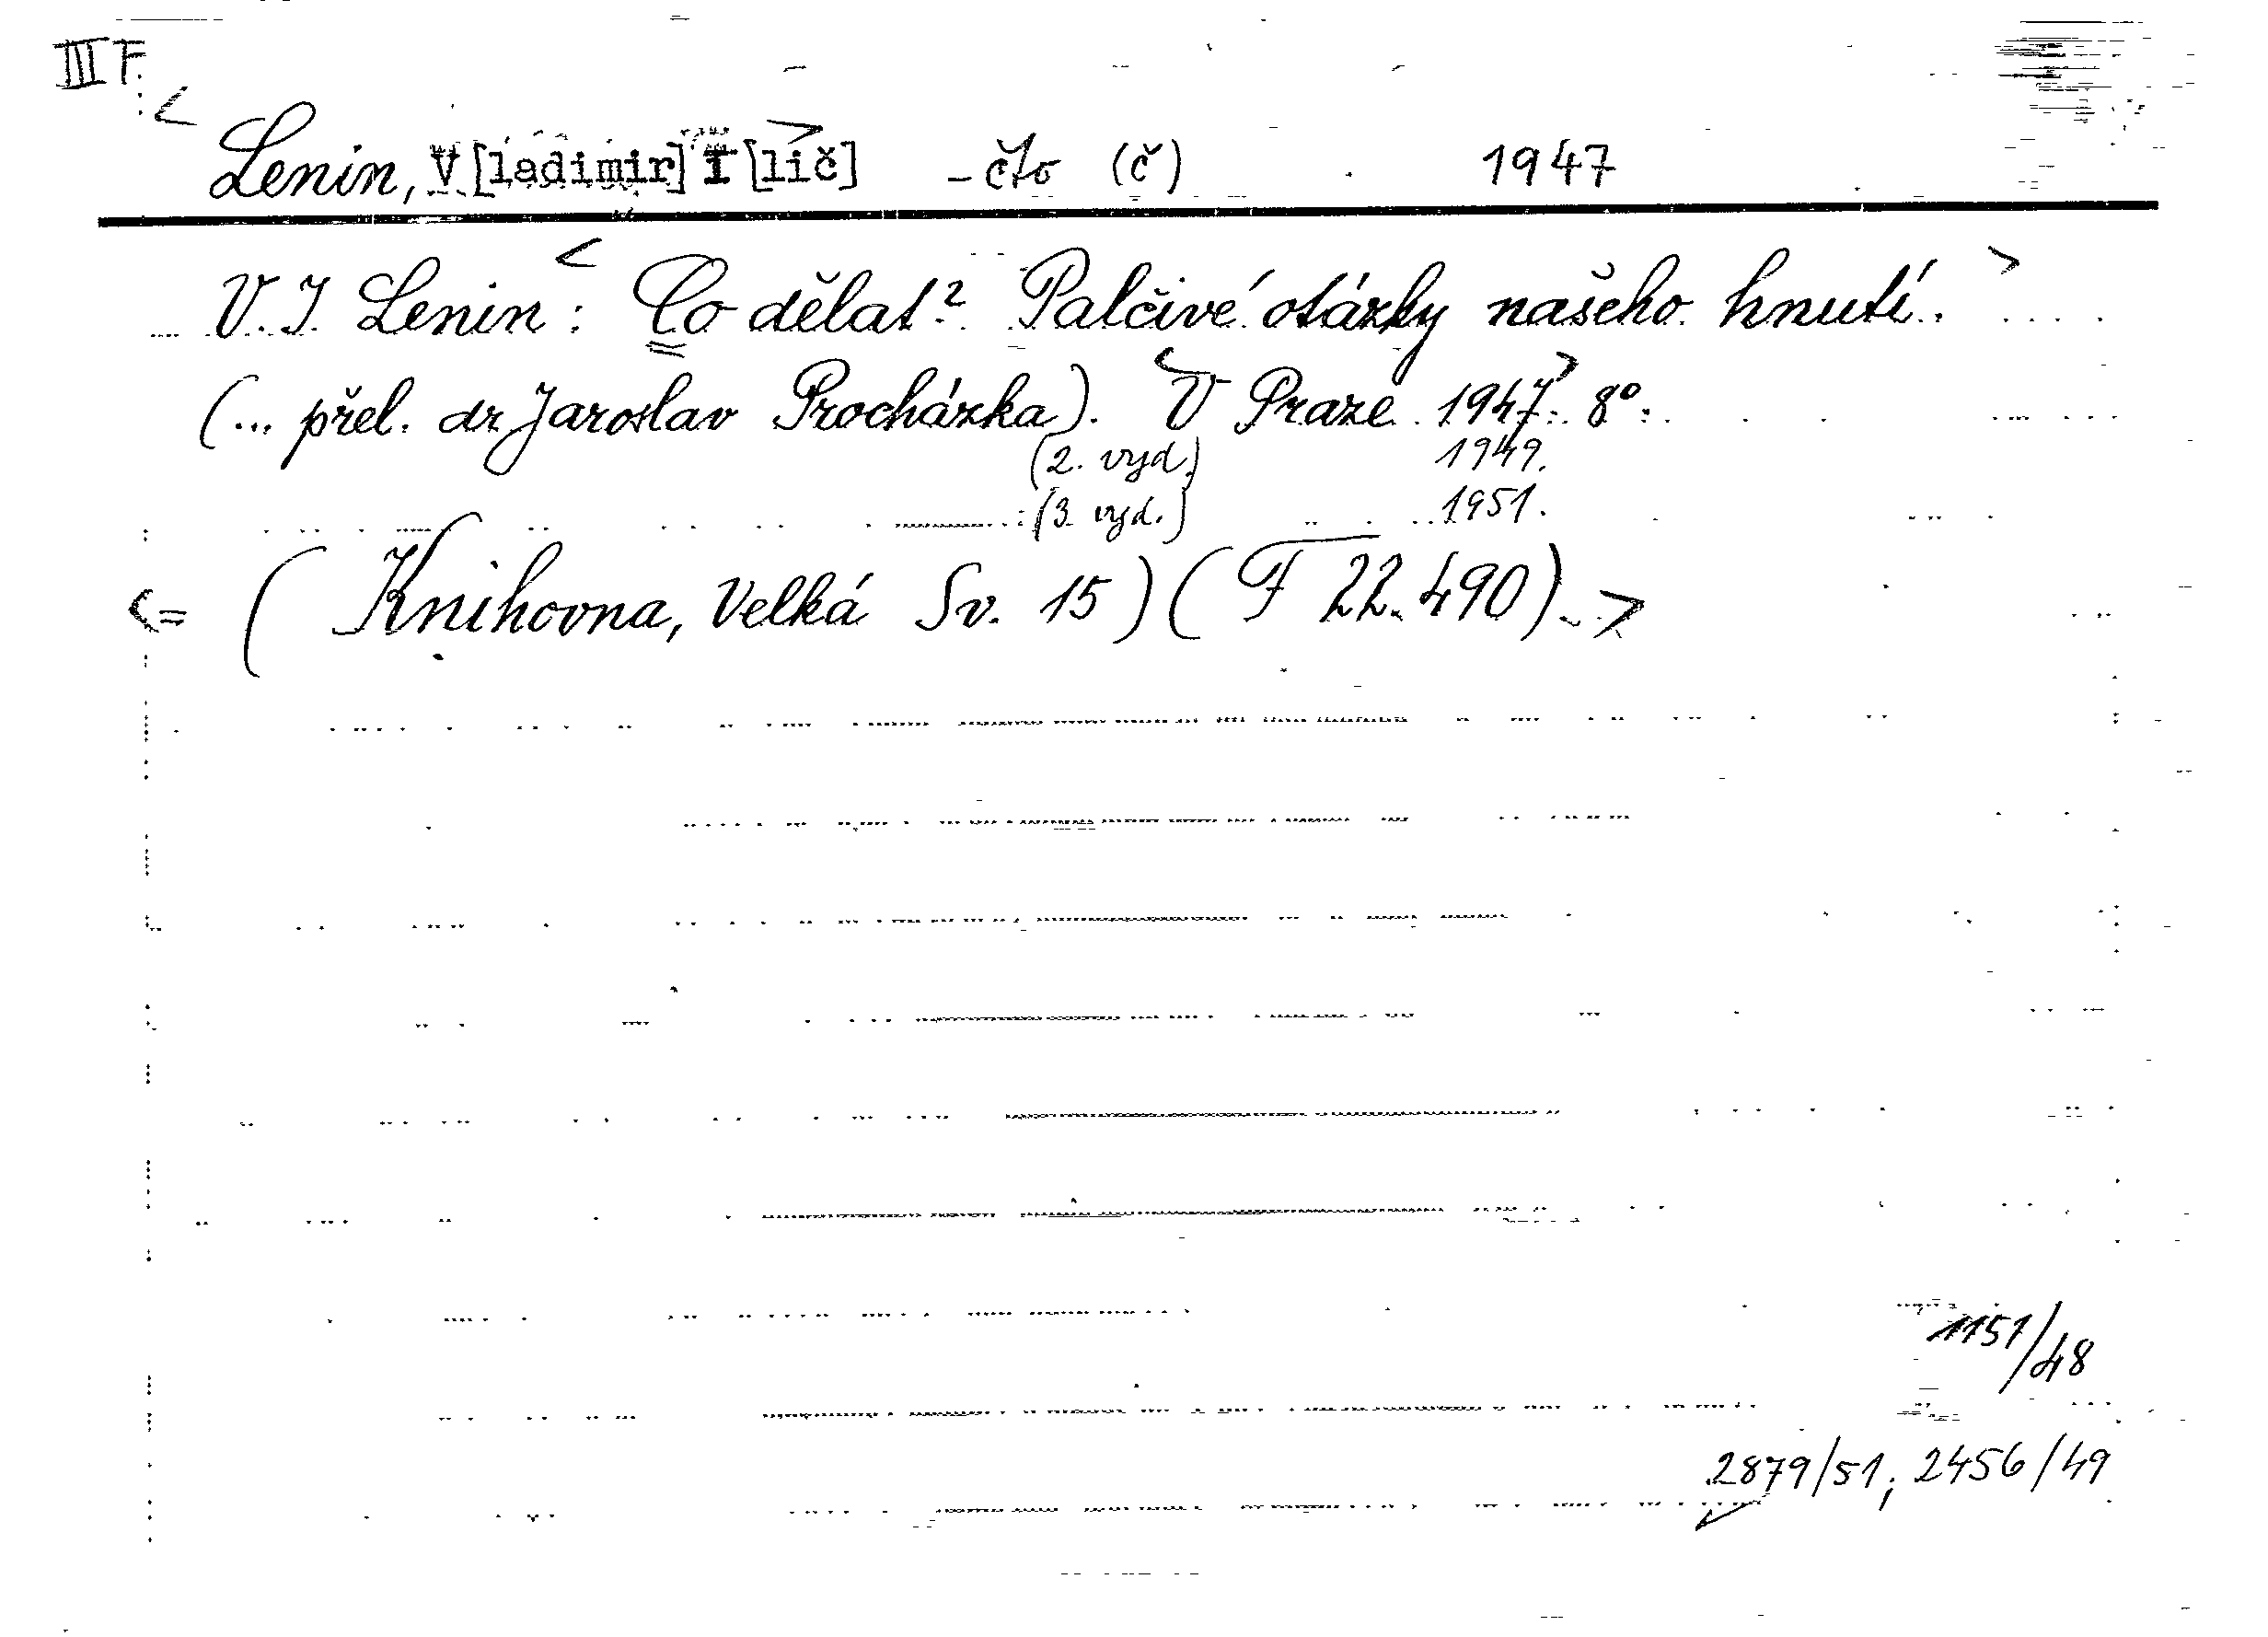 III F.
< Lenin, V[ladimir] I[lič] > - čto (č) 1947
V. I. Lenin: < Co dělat? Palčivé otázky našeho hnutí. >
(... přel. dr Jaroslav Procházka). < V Praze 1947 >. 8°.
(2. vyd.) 1949.
(3. vyd.) 1951.
<= ( Knihovna, Velká Sv. 15) (F 22.490). >
1151/48
2879/51, 2456/49